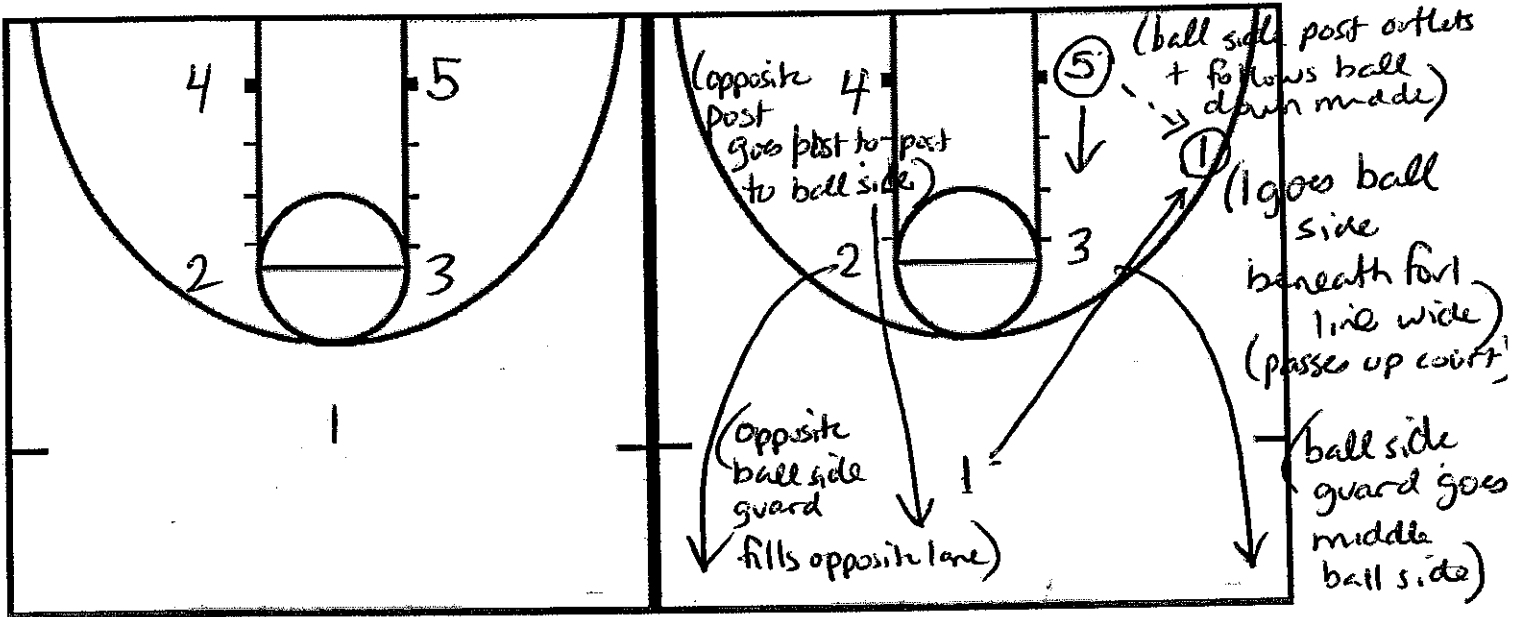 4 5
2 3
1
(opposite
post
goes post-to-post
to ball side)
4
5
(ball side post outlets
+ follows ball
down middle)
1
(1 goes ball
side
beneath forl
line wide)
(passes up court)
2
3
1
(opposite
ball side
guard
fills opposite lane)
(ball side
guard goes
middle
ball side)